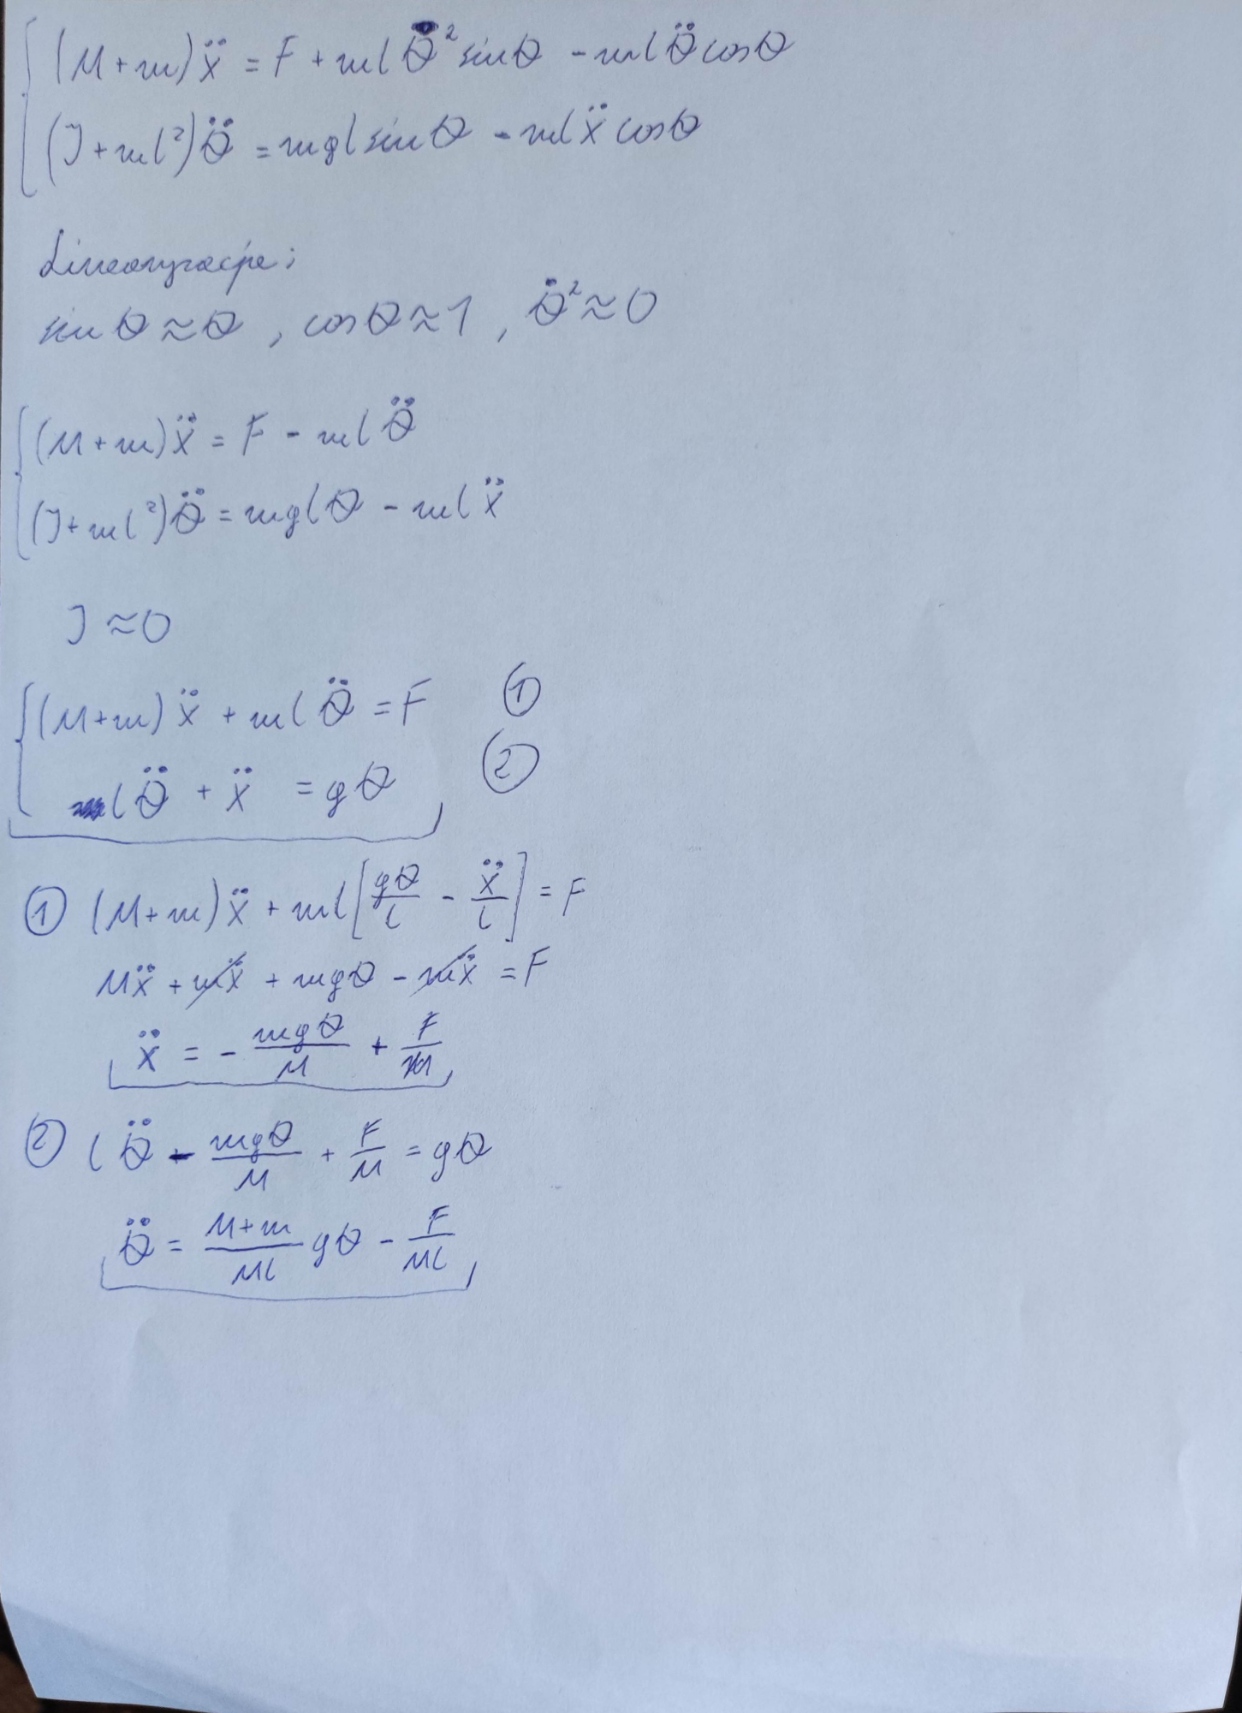 (M+m)ẍ = F + mlθ̇² sinθ - mlθ̈ cosθ
(J+ml²)θ̈ = mgl sinθ - mlẍ cosθ
Linearyzacja:
sinθ ≈ θ , cosθ ≈ 1 , θ̇² ≈ 0
(M+m)ẍ = F - mlθ̈
(J+ml²)θ̈ = mglθ - mlẍ
J ≈ 0
(M+m)ẍ + mlθ̈ = F ①
lθ̈ + ẍ = gθ ②
① (M+m)ẍ + ml[gθ/l - ẍ/l] = F
Mẍ + mẍ + mgθ - mẍ = F
ẍ = - mgθ/M + F/M
② lθ̈ - mgθ/M + F/M = gθ
θ̈ = (M+m)/Ml gθ - F/Ml